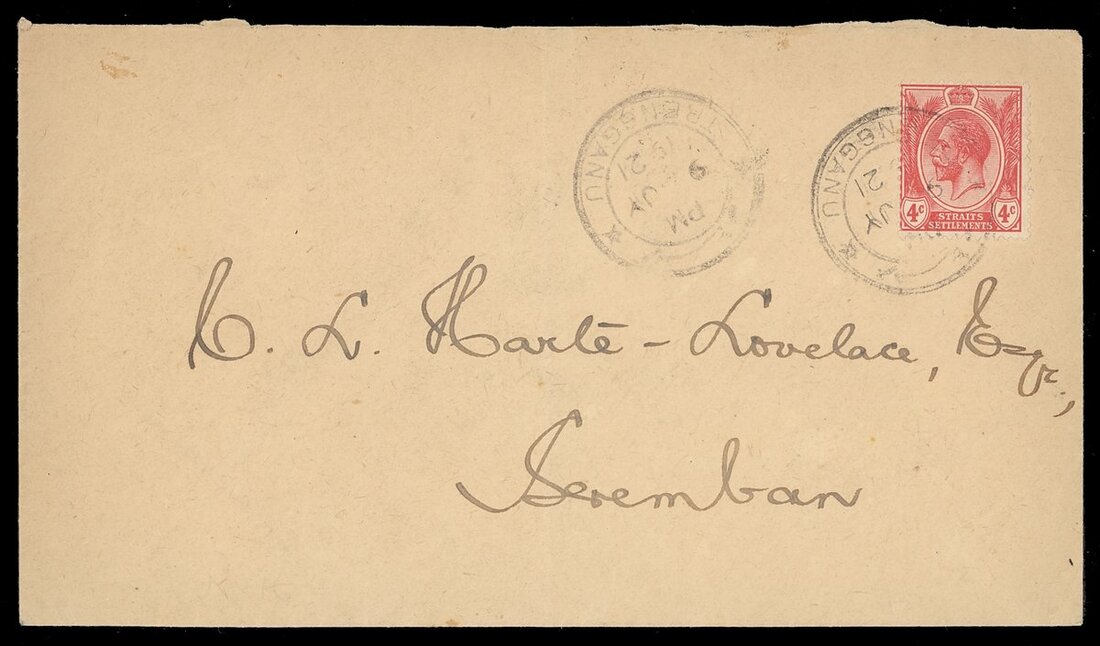 TRENGGANU
PM
9 JY
1921
TRENGGANU
9 JY
21
4c STRAITS SETTLEMENTS 4c
C. L. Harte-Lovelace, Esqr.,
Seremban